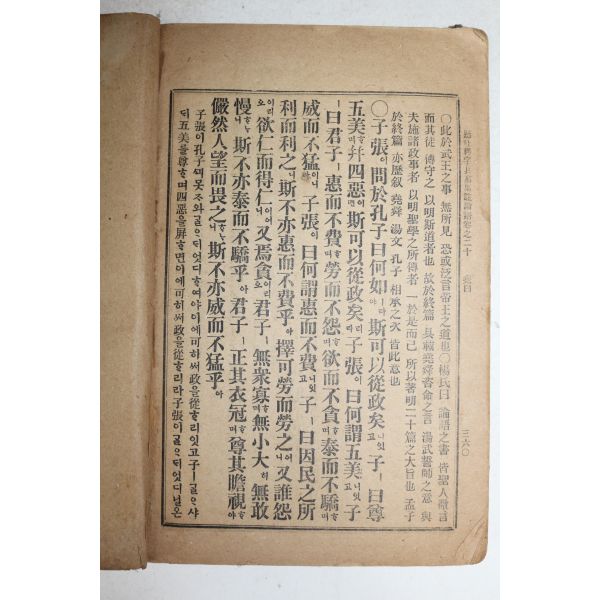 懸吐釋字具解集註論語卷之二十 堯曰 三六〇
○此於武王之事 無所見 恐或泛言帝王之道也○楊氏曰 論語之書 皆聖人微言
而其徒 傳守之 以明斯道者也 故於終篇 具載堯舜咨命之言 湯武誓師之意 與
夫施諸政事者 以明聖學之所傳者 一於是而已 所以著明二十篇之大旨也 孟子
於終篇 亦歷叙 堯舜 湯文 孔子 相承之次 皆此意也
○子張이問於孔子曰何如ㅣ라야斯可以從政矣니잇고子ㅣ曰尊
五美ᄒᆞ며屛四惡이면斯可以從政矣리라子張이曰何謂五美니잇고子
ㅣ曰君子ㅣ惠而不費ᄒᆞ며勞而不怨ᄒᆞ며欲而不貪ᄒᆞ며泰而不驕ᄒᆞ며
威而不猛이니라子張이曰何謂惠而不費니잇고子ㅣ曰因民之所
利而利之니斯不亦惠而不費乎아擇可勞而勞之어니又誰怨
이리오欲仁而得仁이어니又焉貪이리오君子ㅣ無衆寡ᄒᆞ며無小大히無敢
慢ᄒᆞᄂᆞ니斯不亦泰而不驕乎아君子ㅣ正其衣冠ᄒᆞ며尊其瞻視ᄒᆞ야
儼然人望而畏之ᄒᆞᄂᆞ니斯不亦威而不猛乎아
子張이孔子ᄭᅴ묻ᄌᆞ와ᄀᆞᆯᄋᆞ되엇디ᄒᆞ여야이에可히써政을從ᄒᆞ리잇고子ㅣᄀᆞᆯᄋᆞ샤
되五美를尊ᄒᆞ며四惡을屛ᄒᆞ면이에可히써政을從ᄒᆞ리라子張이ᄀᆞᆯᄋᆞ되엇디닐온